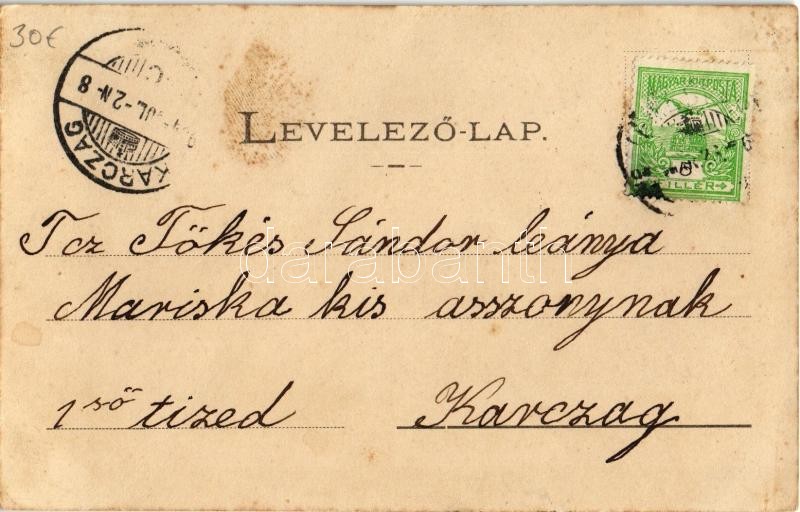 30€
KARCZAG
JUL-2 N-8
LEVELEZŐ-LAP.
MAGYAR KIR. POSTA
FILLÉR
Tcz Tőkés Sándor leánya
darabanth
Mariska kis asszonynak
1ső tized Karczag